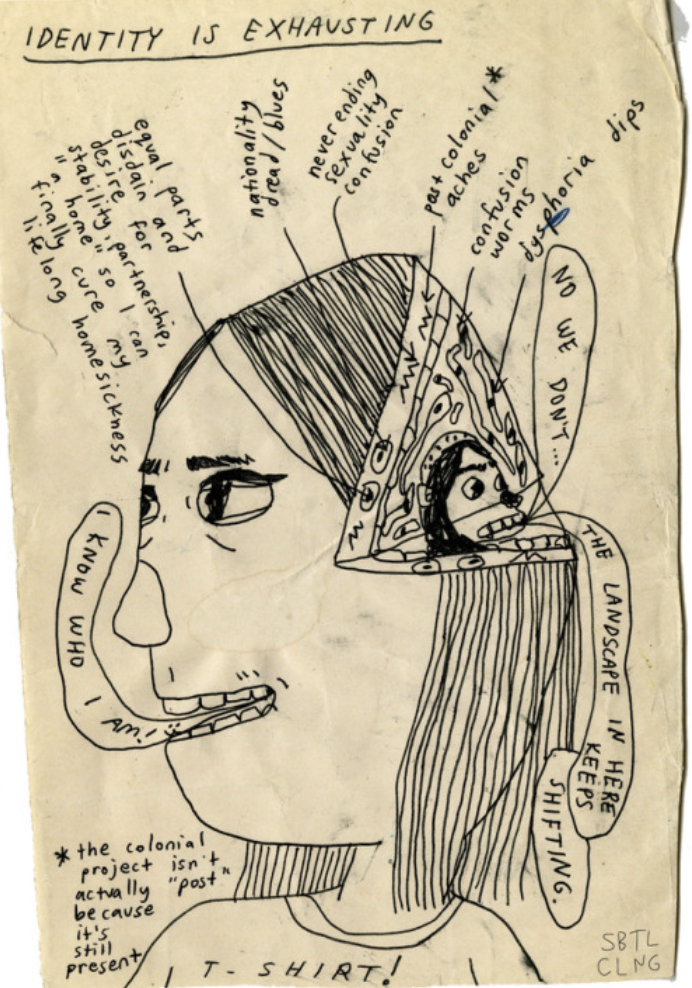 IDENTITY IS EXHAUSTING
equal parts
disdain and
desire for
stability, partnership,
"a home" so I can
finally cure my
lifelong homesickness
nationality
dread/blues
never ending
sexuality
confusion
post colonial*
aches
confusion
worms
dysphoria dips
NO WE DON'T...
I KNOW WHO I AM!
THE LANDSCAPE IN HERE
KEEPS
SHIFTING.
* the colonial
project isn't
actually "post"
because
it's
still
present
T-SHIRT!
SBTL
CLNG